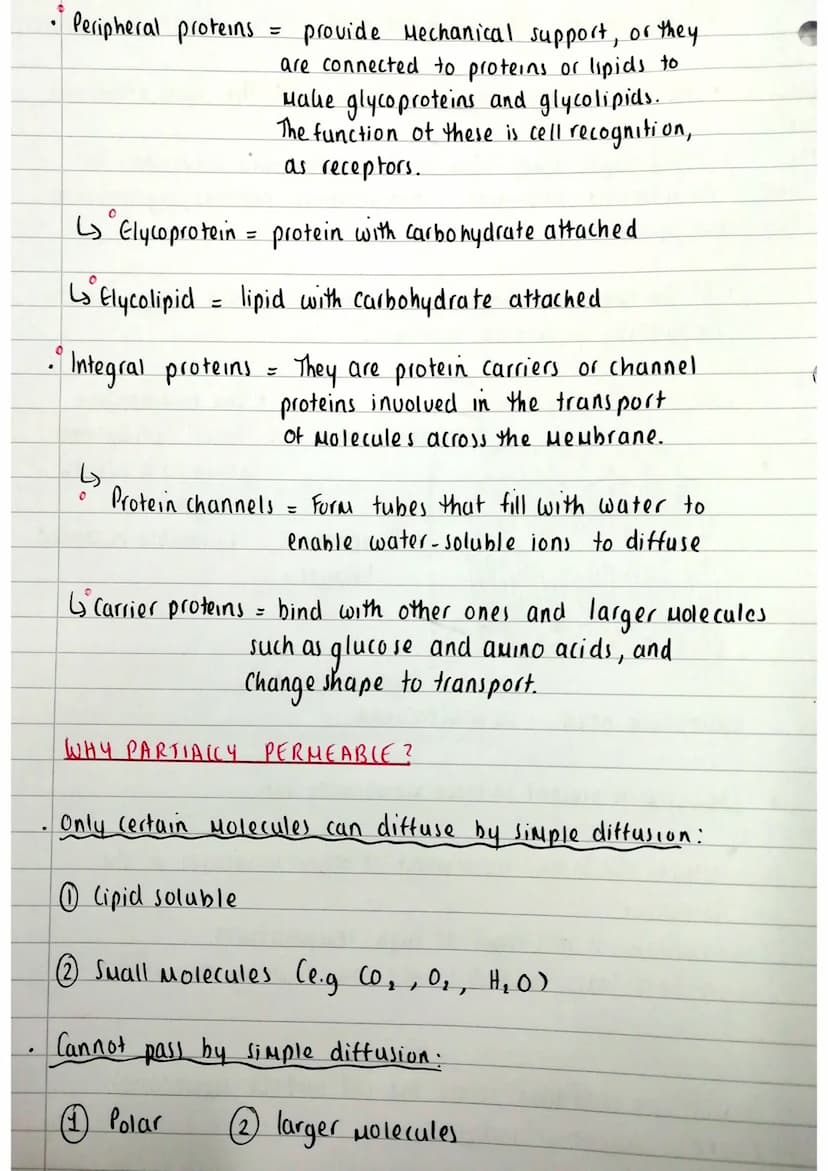 • Peripheral proteins = provide mechanical support, or they
are connected to proteins or lipids to
make glycoproteins and glycolipids.
The function of these is cell recognition,
as receptors.
↳ Glycoprotein = protein with carbohydrate attached
↳ Glycolipid = lipid with carbohydrate attached
• Integral proteins = They are protein carriers or channel
proteins involved in the transport
of molecules across the membrane.
↳
Protein channels = Form tubes that fill with water to
enable water-soluble ions to diffuse
↳ Carrier proteins = bind with other ones and larger molecules
such as glucose and amino acids, and
Change shape to transport.
WHY PARTIALLY PERMEABLE?
• Only certain molecules can diffuse by simple diffusion:
① Lipid soluble
② Small molecules (e.g CO₂, O₂, H₂O)
• Cannot pass by simple diffusion:
① Polar ② larger molecules